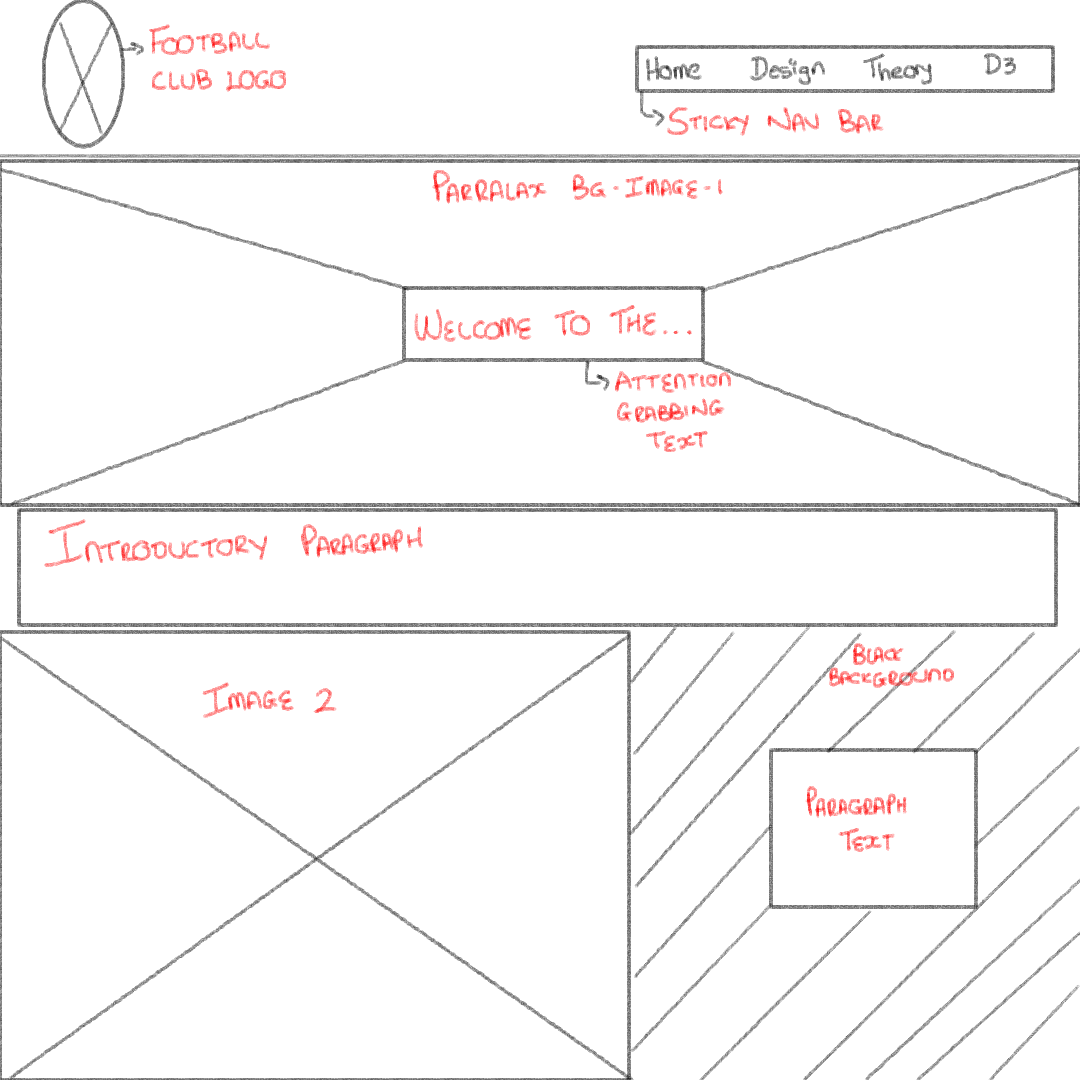 FOOTBALL
CLUB LOGO
Home Design Theory D3
STICKY NAV BAR
PARRALAX BG-IMAGE-1
WELCOME TO THE...
ATTENTION
GRABBING
TEXT
INTRODUCTORY PARAGRAPH
IMAGE 2
BLACK
BACKGROUND
PARAGRAPH
TEXT